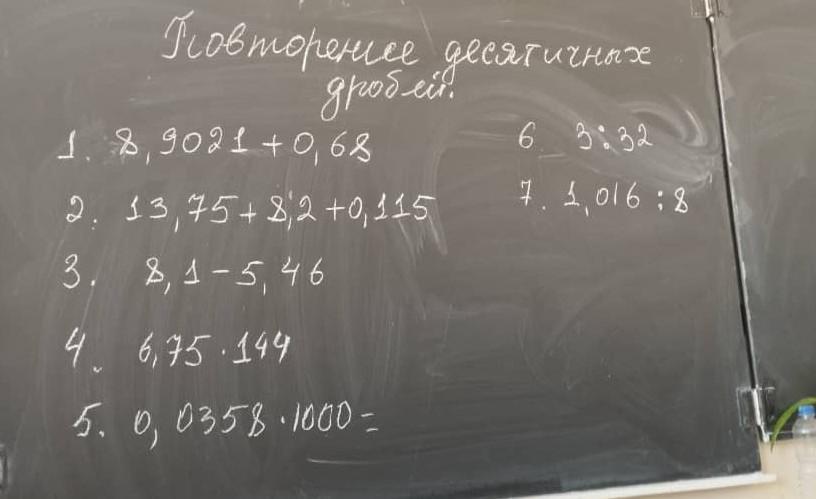 Повторение десятичных
дробей.
1. 8,9021+0,68
2. 13,75+8,2+0,115
3. 8,1-5,46
4. 6,75·144
5. 0,0358·1000=
6. 3:32
7. 1,016:8